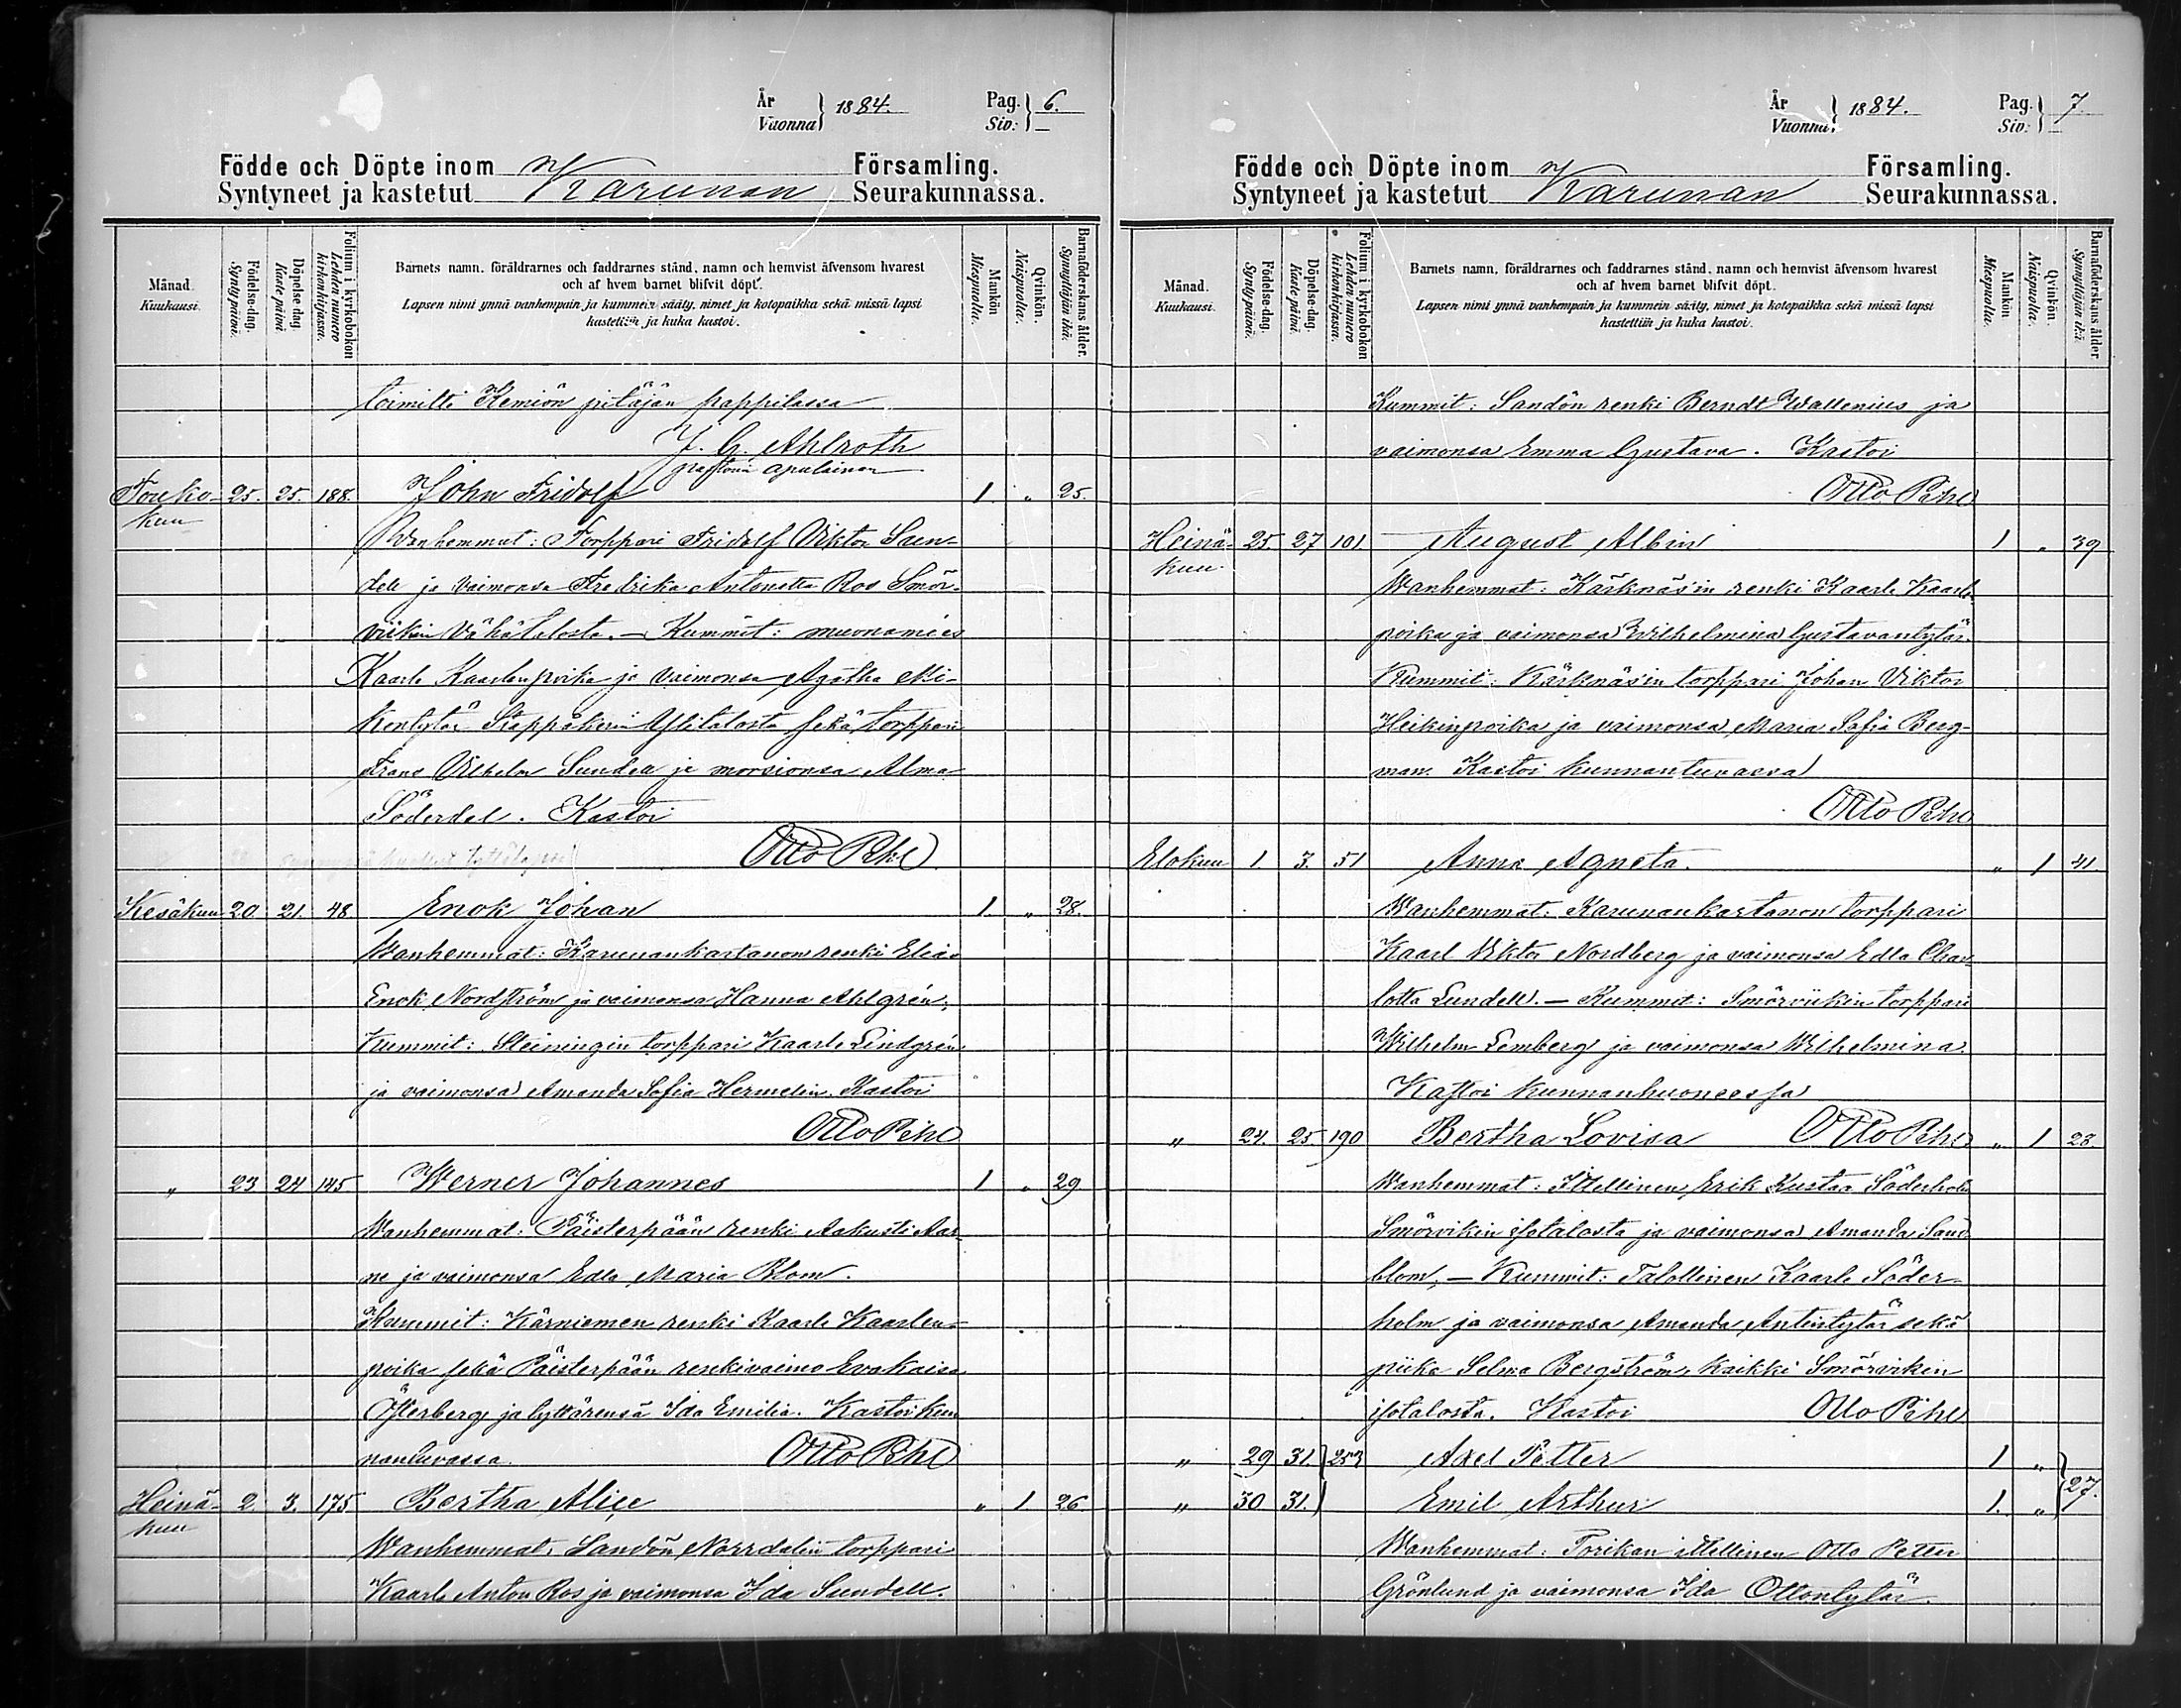 År
Vuonna } 1884.
Pag.
Siv: } 6.
Födde och Döpte inom Karunan Församling.
Syntyneet ja kastetut Seurakunnassa.
Månad.
Kuukausi.
Födelse-dag.
Synty päivä.
Döpelse dag.
Kaste päivä.
Folium i kyrkobokon
Lehden numero
kirkonkirjassa.
Barnets namn, föräldrarnes och faddrarnes stånd, namn och hemvist äfvensom hvarest
och af hvem barnet blifvit döpt.
Lapsen nimi ynnä vanhempain ja kummein sääty, nimet ja kotopaikka sekä missä lapsi
kastettiin ja kuka kastoi.
Mankön
Miespuolia.
Qvinkön.
Naispuolia.
Barnaföderskans ålder.
Synnyttäjän ikä.
toimitti Kemiön pitäjän pappilassa
J. G. Ahlroth
pastorin apulainen
Touko- 25. 25. 188. John Fridolf 1. „ 25.
kuu
Wanhemmat: Torppari Fridolf Viktor Sun-
dell ja vaimonsa Fredrika Antonetta Ros Smör-
vikin Vähätalosta. — Kummit: muonamies
Kaarle Kaarlenpoika ja vaimonsa Agatha Mi-
kentytär Ylitalosta sekä torppari
Frans Vilhelm Sundell ja morsionsa Alma
Söderdal. Kastoi
Otto Pihl
Kesäkuu 20 21. 48 Enok Johan 1. „ 28.
Wanhemmat: Karunankartanon renki Elias
Enok Nordström ja vaimonsa Hanna Ahlgrén;
Kummit: Steiningin torppari Kaarle Lindgrén
ja vaimonsa Amanda Sofia Hermelin. Kastoi
Otto Pihl
„ 23 24 145 Werner Johannes 1 „ 29
Wanhemmat: Päisterpään renki Aakusti Aar-
ne ja vaimonsa Edla Maria Blom.
Kummit: Kärniemen renki Kaarle Kaarlen-
poika sekä Päisterpään renkivaimo Eva Kaisa
Österberg ja tyttärensä Ida Emilia. Kastoi kun
nantuvassa. Otto Pihl
Heinä- 2. 3. 175 Bertha Alice „ 1. 26
kuu
Wanhemmat: Sandön Norrdalin torppari
Kaarle Anton Ros ja vaimonsa Ida Sundell.
År
Vuonna } 1884.
Pag.
Siv: } 7.
Födde och Döpte inom Karunan Församling.
Syntyneet ja kastetut Seurakunnassa.
Månad.
Kuukausi.
Födelse-dag.
Synty päivä.
Döpelse-dag.
Kaste päivä.
Folium i kyrkobokon
Lehden numero
kirkonkirjassa.
Barnets namn, föräldrarnes och faddrarnes stånd, namn och hemvist äfvensom hvarest
och af hvem barnet blifvit döpt.
Lapsen nimi ynnä vanhempain ja kummein sääty, nimet ja kotopaikka sekä missä lapsi
kastettiin ja kuka kastoi.
Mankön
Miespuolia.
Qvinkön.
Naispuolia.
Barnaföderskans ålder
Synnyttäjän ikä.
Kummit: Sandön renki Berndt Wallenius ja
vaimonsa Emma Gustava. Kastoi
Otto Pihl
Heinä- 25. 27 101. August Albin 1 „ 39
kuu.
Wanhemmat: Kärknäs'in renki Kaarle Kaarlen
poika ja vaimonsa Wilhelmina Gustavantytär.
Kummit: Kärknäs'in torppari Johan Viktor
Heikinpoika ja vaimonsa Maria Sofia Berg-
man. Kastoi kunnantuvassa
Otto Pihl
Elokuu 1. 3. 51 Anna Agneta. „ 1 41.
Wanhemmat: Karunankartanon torppari
Kaarl Viktor Nordberg ja vaimonsa Edla Char-
lotta Lundell. — Kummit: Smörvikin torppari
Wilhelm Lemberg ja vaimonsa Wilhelmina.
Kastoi kunnanhuoneessa
„ 24. 25 190 Bertha Lovisa Otto Pihl „ 1 28.
Wanhemmat: Itellinen Erik Kustaa Söderholm
Smörvikin isotalosta ja vaimonsa Amanda Sand-
blom, — Kummit: Talollinen Kaarle Söder-
holm ja vaimonsa Amanda Antintytär sekä
piika Selma Bergström, kaikki Smörvikin
isotalosta. Kastoi Otto Pihl
„ 29 31. } 253 Axel Petter 1 „
„ 30 31. } Emil Arthur 1. „ } 27.
Wanhemmat: Torikan itellinen Otto Petter
Grönlund ja vaimonsa Ida Ottontytär.